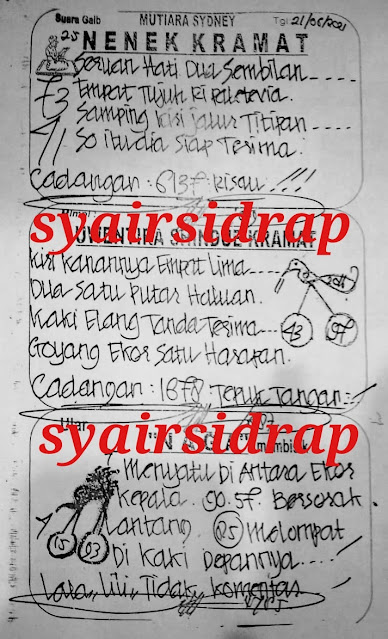 Suara Gaib MUTIARA SYDNEY Tgl 21/06/2021
25 NENEK KRAMAT
Seruan Hati Dua Sembilan ----
73 Empat Tujuh
Samping Kisi Jalur Titipan ----
71 So itu dia Siap Terima.
Cadangan: 6137. Risau !!!
syairsidrap
KRAMAT
Kisi Kanannya Empat Lima ----
Dua Satu Putar Haluan.
Kaki Elang Tanda Terima ---- 43 97
Goyang Ekor Satu Harapan.
Cadangan: 1678 Tepuk Tangan =!
syairsidrap
Menyatu Di Antara Ekor
Kepala. 90.57 Bersorak
Lantang. 25 Melompat
15 03 Di Kaki Depannya ---!
Lara,, Lili,, Tidak Komentas